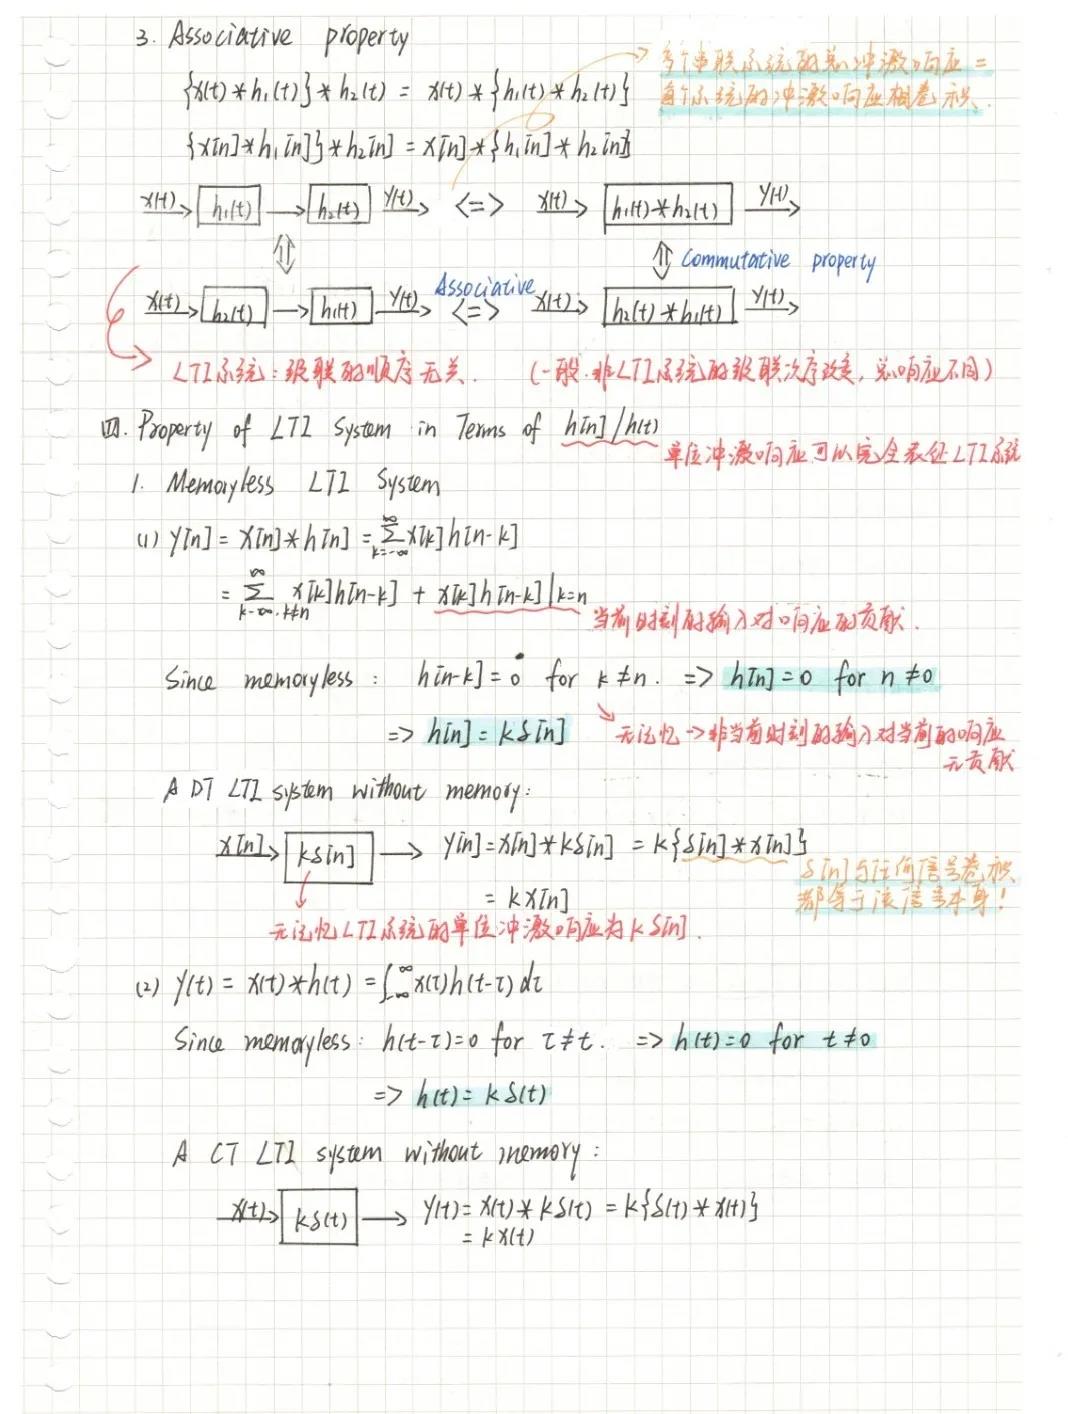 3. Associative property
多个串联系统的总冲激响应=
每个系统的冲激响应相卷积.
{x(t)*h₁(t)}*h₂(t) = x(t)*{h₁(t)*h₂(t)}
{x[n]*h₁[n]}*h₂[n] = x[n]*{h₁[n]*h₂[n]}
x(t) → h₁(t) → h₂(t) y(t) → <=> x(t) → h₁(t)*h₂(t) y(t) →
⇕ ⇕ Commutative property
x(t) → h₂(t) → h₁(t) y(t) → Associative <=> x(t) → h₂(t)*h₁(t) y(t) →
LTI系统:级联的顺序无关. (一般.非LTI系统的级联次序改变,总响应不同)
四. Property of LTI System in Terms of h[n]/h(t)
单位冲激响应可以完全表征LTI系统
1. Memoryless LTI System
(1) y[n] = x[n]*h[n] = ∑_{k=-∞}^{∞} x[k]h[n-k]
= ∑_{k=-∞, k≠n}^{∞} x[k]h[n-k] + x[k]h[n-k]|k=n
当前时刻的输入对响应的贡献.
Since memoryless: h[n-k]=0 for k≠n. => h[n]=0 for n≠0
=> h[n]=kδ[n]
无记忆->非当前时刻的输入对当前的响应
无贡献
A DT LTI system without memory:
x[n] → kδ[n] → y[n]=x[n]*kδ[n] = k{δ[n]*x[n]}
= kx[n]
δ[n]与任何信号卷积
都等于该信号本身!
无记忆LTI系统的单位冲激响应为kδ[n].
(2) y(t) = x(t)*h(t) = ∫_{-∞}^{∞} x(τ)h(t-τ)dτ
Since memoryless: h(t-τ)=0 for τ≠t. => h(t)=0 for t≠0
=> h(t)=kδ(t)
A CT LTI system without memory:
x(t) → kδ(t) → y(t)=x(t)*kδ(t) = k{δ(t)*x(t)}
= kx(t)